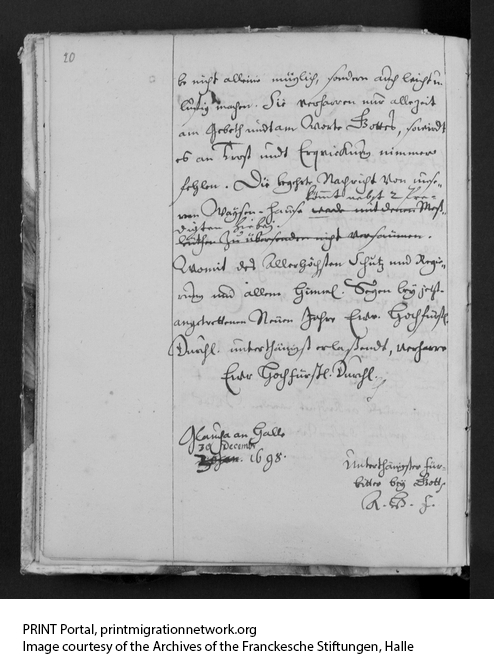 20
be nicht alleine müglich, sondern auch leicht u.
lustig machen. Sie verharren nur allezeit
am Gebeth undt am Worte Gottes, so wirdt
es an Trost undt Erquickung nimmer
fehlen. Die begehrte Nachricht von unse-
kömmt nebst 2 Pre-
ren Waysen-Hause werde mit denen
digten hiebey.
zu übersenden nicht versäumen.
Womit des Allerhöchsten Schutz und Regie-
rung und allem himml. Seegen bey jetzt-
angetrettenen Neuen Jahre Ewr. Hochfürstl.
Durchl. unterthänigst erlassendt, verharre
Ewr Hochfürstl. Durchl.
Glaucha an Halle
December
1698.
Unterthänigster Für-
bitter bey Gott
A. H. F.
PRINT Portal, printmigrationnetwork.org
Image courtesy of the Archives of the Franckesche Stiftungen, Halle